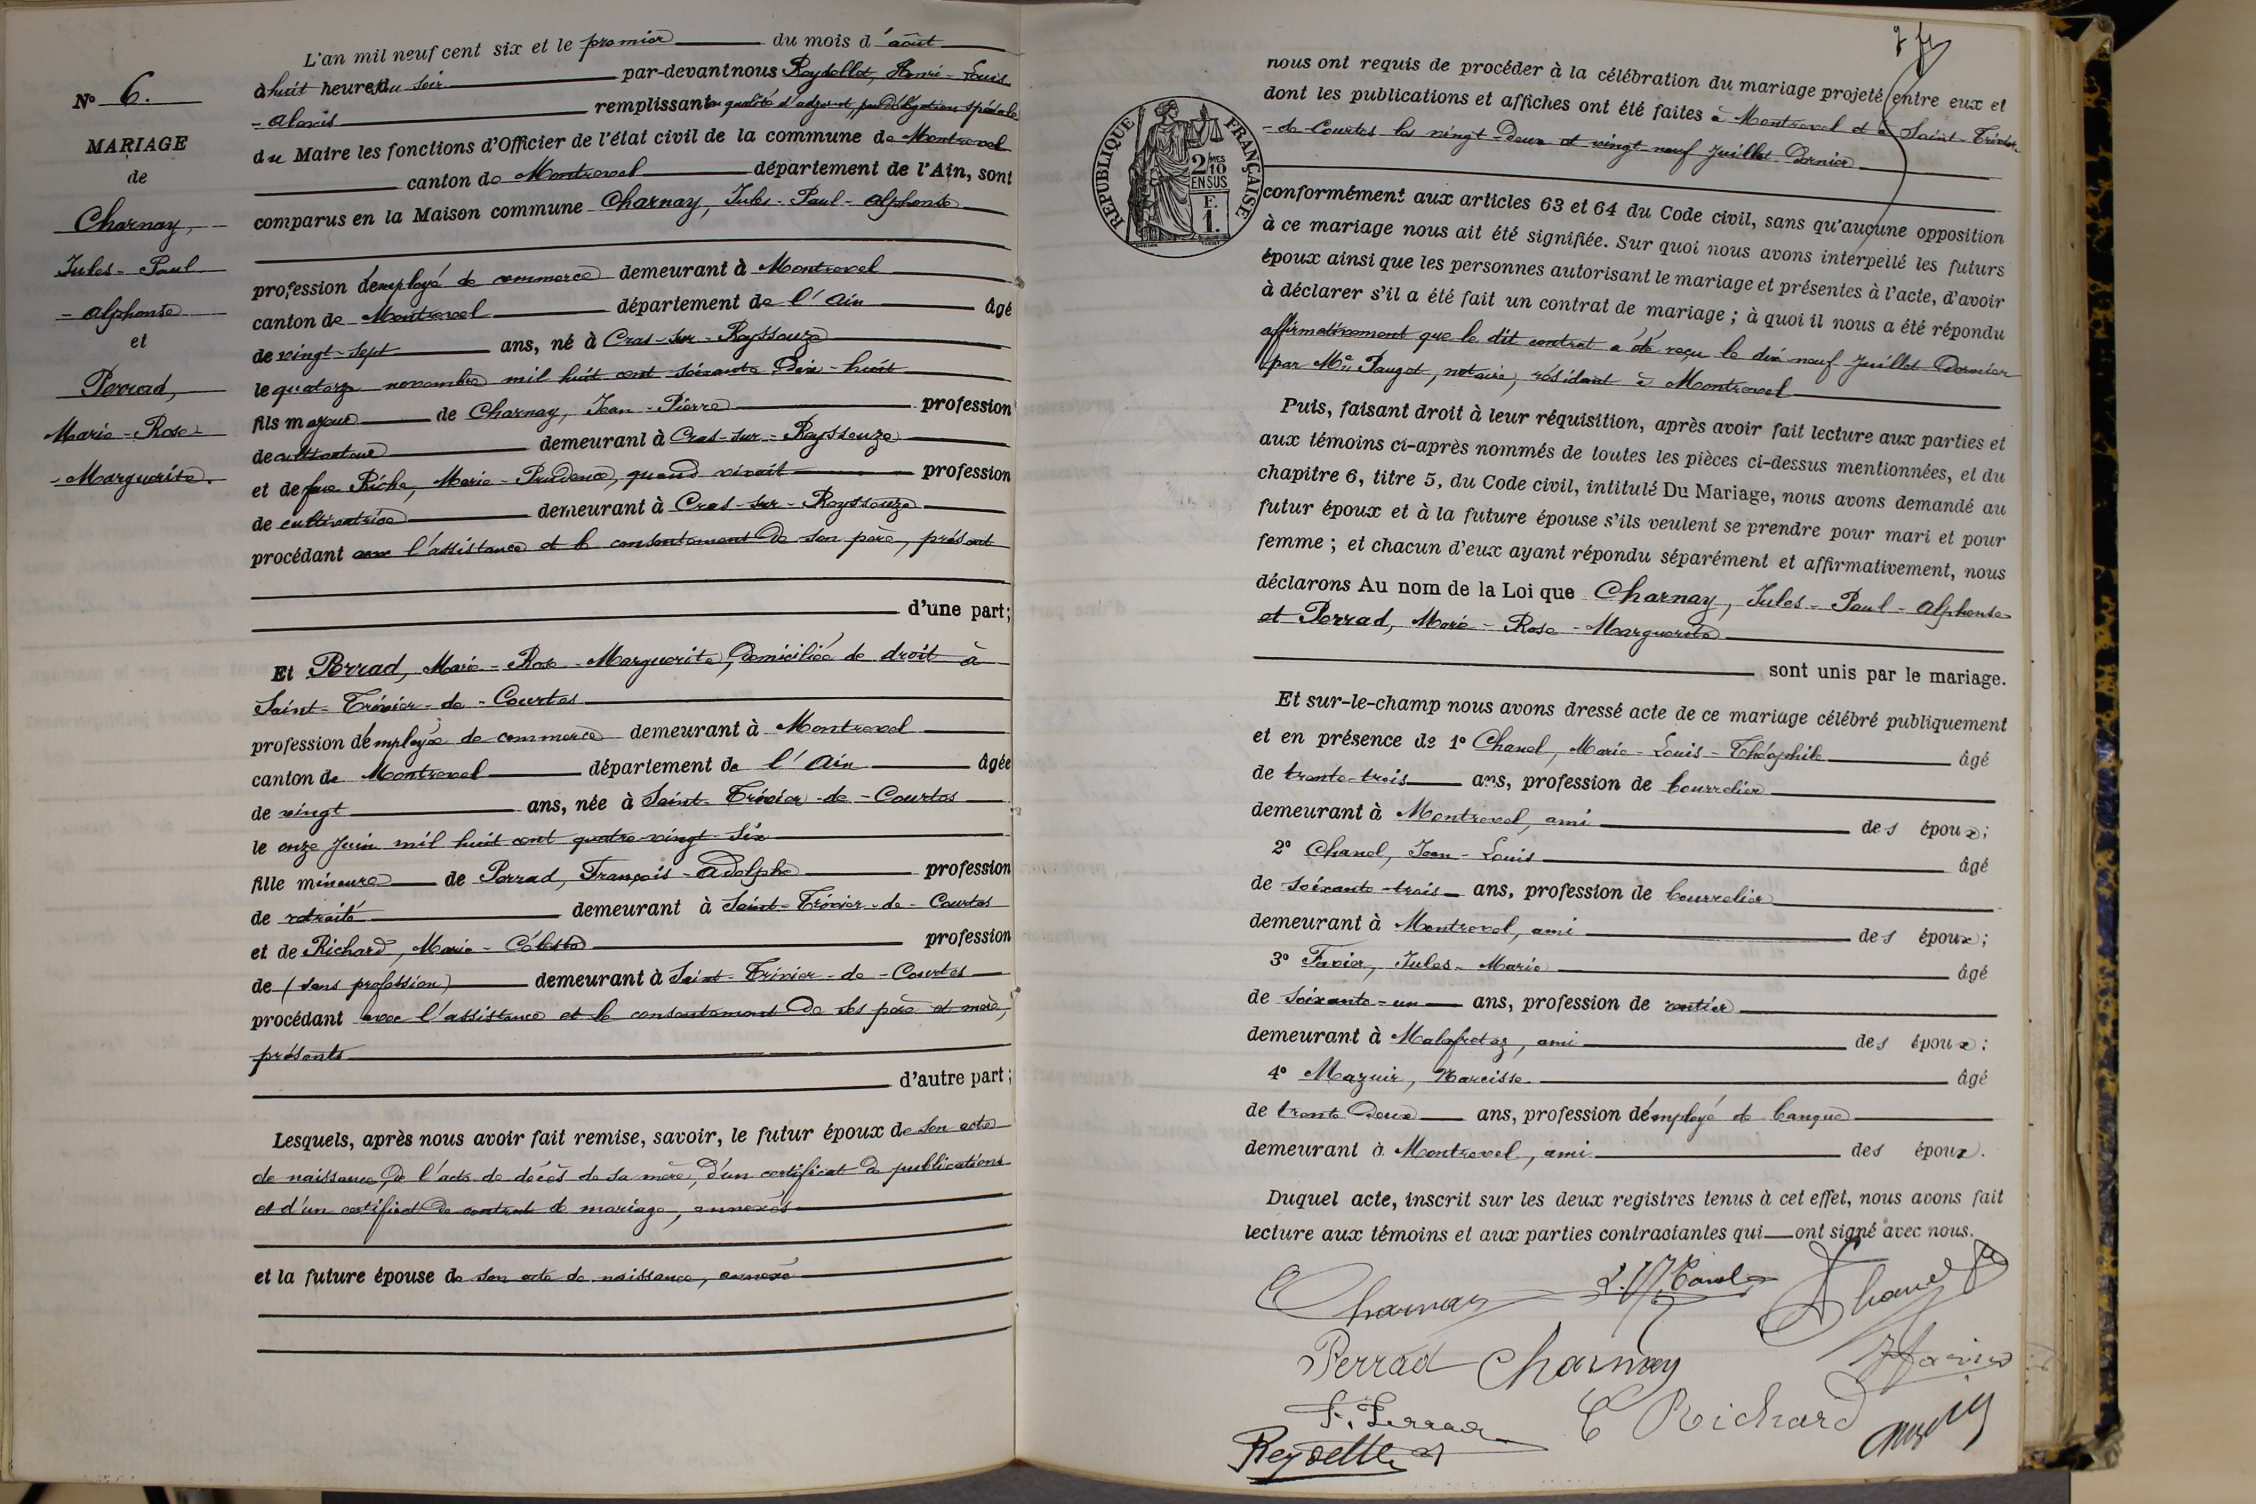 L'an mil neuf cent six et le premier du mois d'août
à huit heures du soir par-devant nous Reydellet, Henri-Louis
-Alexis remplissant en qualité d'adjoint, par délégation spéciale
du Maire les fonctions d'Officier de l'état civil de la commune de Montrevel
canton de Montrevel département de l'Ain, sont
comparus en la Maison commune Charnay, Jules-Paul-Alphonse
profession d'employé de commerce demeurant à Montrevel
canton de Montrevel département de l'Ain âgé
de vingt-sept ans, né à Cras-sur-Reyssouze
le quatorze novembre mil huit cent soixante Dix-huit
fils majeur de Charnay, Jean-Pierre profession
de cultivateur demeurant à Cras-sur-Reyssouze
et de feue Riche, Marie-Prudence, quand vivait profession
de cultivatrice demeurant à Cras-sur-Reyssouze
procédant avec l'assistance et le consentement de son père, présent
d'une part;
Et Perrad, Marie-Rose-Marguerite, domiciliée de droit à
Saint-Trivier-de-Courtes
profession d'employée de commerce demeurant à Montrevel
canton de Montrevel département de l'Ain âgée
de vingt ans, née à Saint-Trivier-de-Courtes
le onze juin mil huit cent quatre-vingt-six
fille mineure de Perrad, François-Adolphe profession
de retraité demeurant à Saint-Trivier-de-Courtes
et de Richard, Marie-Célesta profession
de (sans profession) demeurant à Saint-Trivier-de-Courtes
procédant avec l'assistance et le consentement de ses père et mère,
présents
d'autre part;
Lesquels, après nous avoir fait remise, savoir, le futur époux de son acte
de naissance, de l'acte de décès de sa mère, d'un certificat de publications
et d'un certificat de contrat de mariage, annexés
et la future épouse de son acte de naissance, annexé
N° 6.
MARIAGE
de
Charnay,
Jules-Paul
-Alphonse
et
Perrad,
Marie-Rose-
-Marguerite.
RÉPUBLIQUE FRANÇAISE
2/10 EN SUS
F. 1.
nous ont requis de procéder à la célébration du mariage projeté entre eux et
dont les publications et affiches ont été faites à Montrevel et à Saint-Trivier-
-de-Courtes les vingt-deux et vingt-neuf juillet dernier
conformément aux articles 63 et 64 du Code civil, sans qu'aucune opposition
à ce mariage nous ait été signifiée. Sur quoi nous avons interpellé les futurs
époux ainsi que les personnes autorisant le mariage et présentes à l'acte, d'avoir
à déclarer s'il a été fait un contrat de mariage; à quoi il nous a été répondu
affirmativement que le dit contrat a été reçu le dix neuf juillet dernier
par Me Paugot, notaire, résidant à Montrevel
Puis, faisant droit à leur réquisition, après avoir fait lecture aux parties et
aux témoins ci-après nommés de toutes les pièces ci-dessus mentionnées, et du
chapitre 6, titre 5, du Code civil, intitulé Du Mariage, nous avons demandé au
futur époux et à la future épouse s'ils veulent se prendre pour mari et pour
femme; et chacun d'eux ayant répondu séparément et affirmativement, nous
déclarons Au nom de la Loi que Charnay, Jules-Paul-Alphonse
et Perrad, Marie-Rose-Marguerite
sont unis par le mariage.
Et sur-le-champ nous avons dressé acte de ce mariage célébré publiquement
et en présence de 1° Chanel, Marie-Louis-Théophile âgé
de trente-trois ans, profession de bourrelier
demeurant à Montrevel, ami des époux;
2° Chanel, Jean-Louis âgé
de soixante-trois ans, profession de bourrelier
demeurant à Montrevel, ami des époux;
3° Favier, Jules-Marie âgé
de soixante-un ans, profession de rentier
demeurant à Malafretaz, ami des époux;
4° Mazuir, Narcisse âgé
de trente deux ans, profession d'employé de banque
demeurant à Montrevel, ami des époux.
Duquel acte, inscrit sur les deux registres tenus à cet effet, nous avons fait
lecture aux témoins et aux parties contractantes qui ont signé avec nous.
Charnay Chanel
Perrad Charnay Favier
F. Perrad C Richard
Reydellet